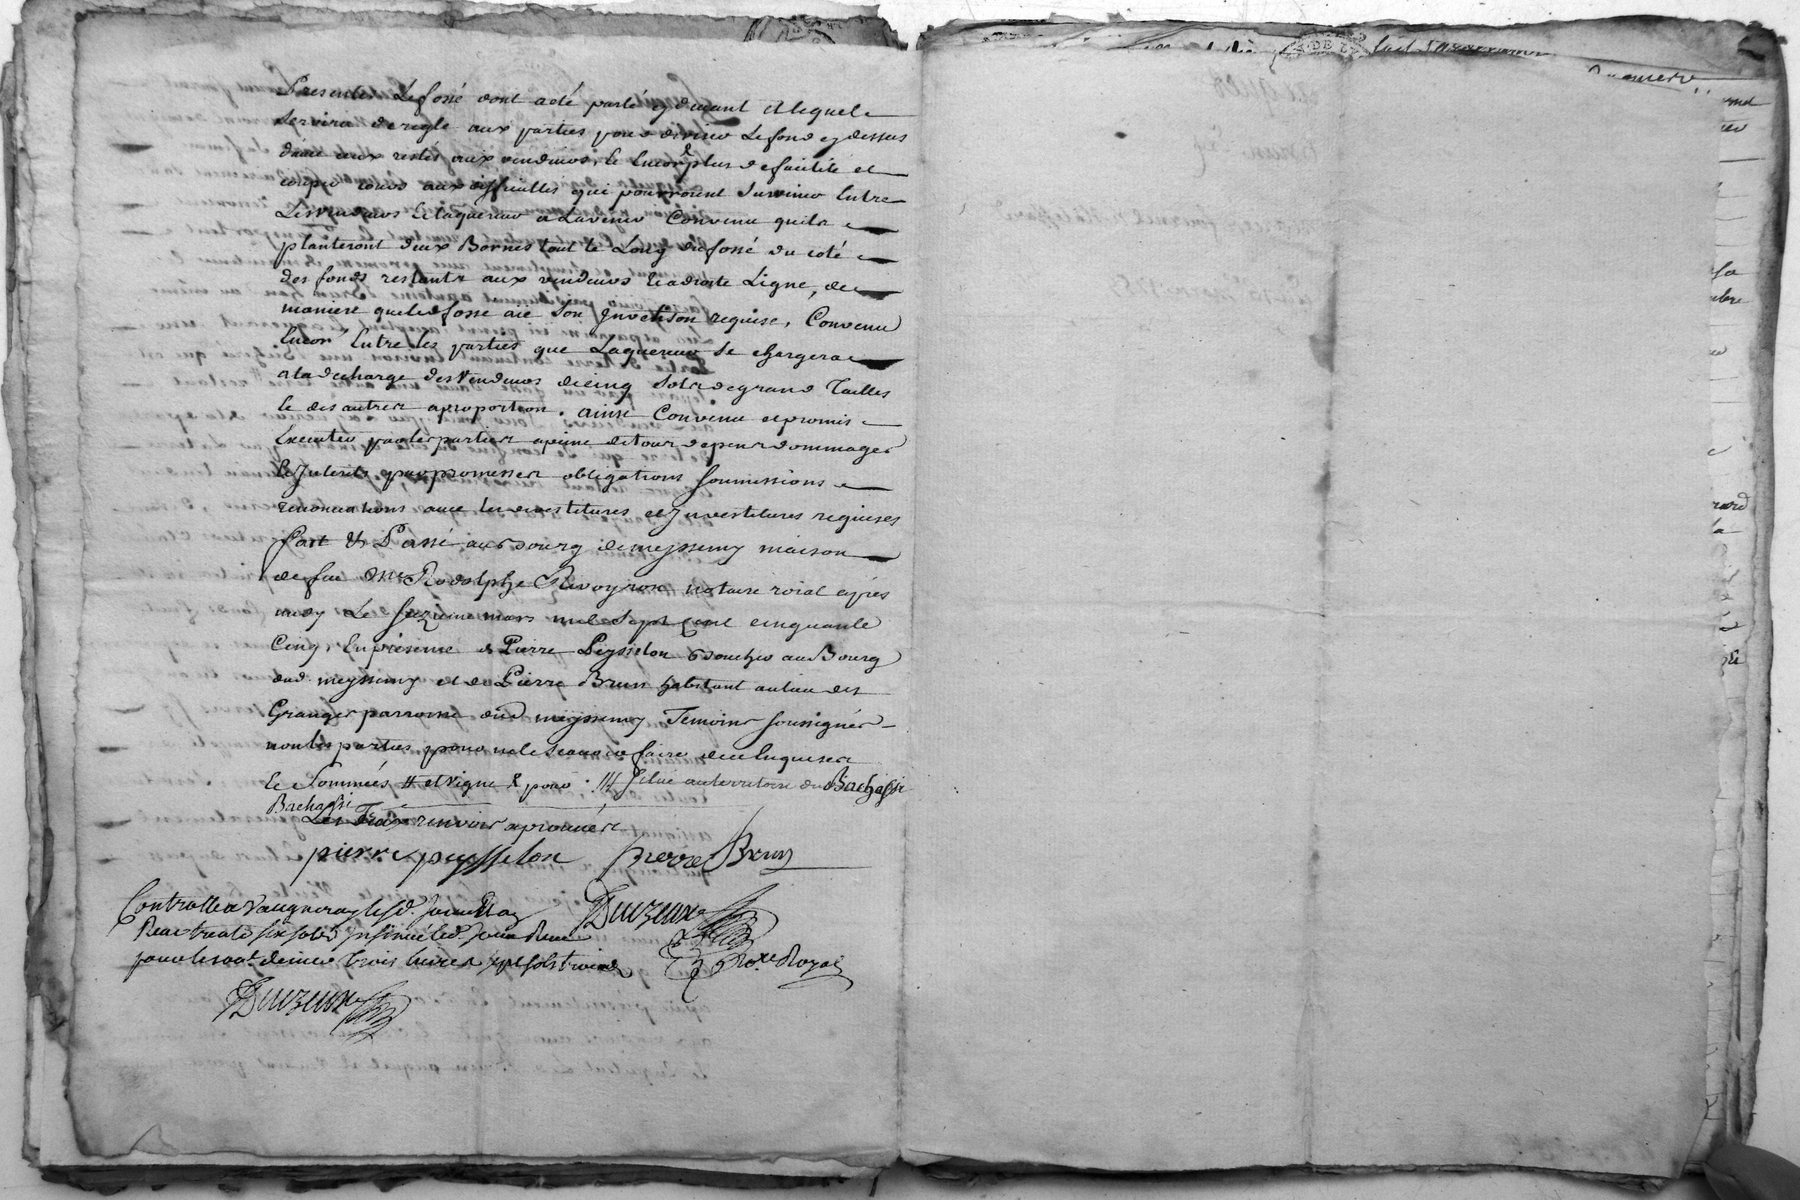 Presentes Le fossé dont a été parlé cy devant et lequel
servira de regle aux parties pour diviser Le fond cy dessus
davec ceux restés aux vendeurs, et Encor plus de facilité et
couper cours aux difficultés qui pourroient survenir Entre
Les vendeurs et laquereur a Lavenir Convenu quils
planteront deux Bornes tout le Long du fossé du coté
des fonds restants aux vendeurs en droite Ligne, de
maniere que led fosse aie son Invetison requise, Convenu
Encor Entre les parties que Laquereur se chargera
a la decharge des vendeurs de cinq sols de grand Tailles
et des autres a proportion. ainsi Convenu et promis
Executer par les parties a peine de tous depens dommages
et Interets par promesses obligations soumissions
renonciations avec les devestitures et Investitures requises
fait et Passé au Bourg de meyssimy maison
de feu Me Rodolphe Rivoyron notaire roial apres
midy Le seizieme mars mil sept cent cinquante
Cinq, En presence de Pierre Peysselon Boucher au Bourg
dud meyssimy et de Pierre Brun habitant au lieu des
Granges parroisse dud meyssimy Temoins soussignés
non les parties pour ne le scavoir faire de ce Enquises
et sommées # et vigne & pour /// situé au territoire du Bachassi
Bachassi
Les Trois renvois aprouvés
pierre peysselon pierre Brun
Controllé a Vaugneray led. jour
Reçu trente six sols insinué led. jour Reçu
pour le cent. denier trois livres sols
Duvzeux
No.re Royal
Duvzeux